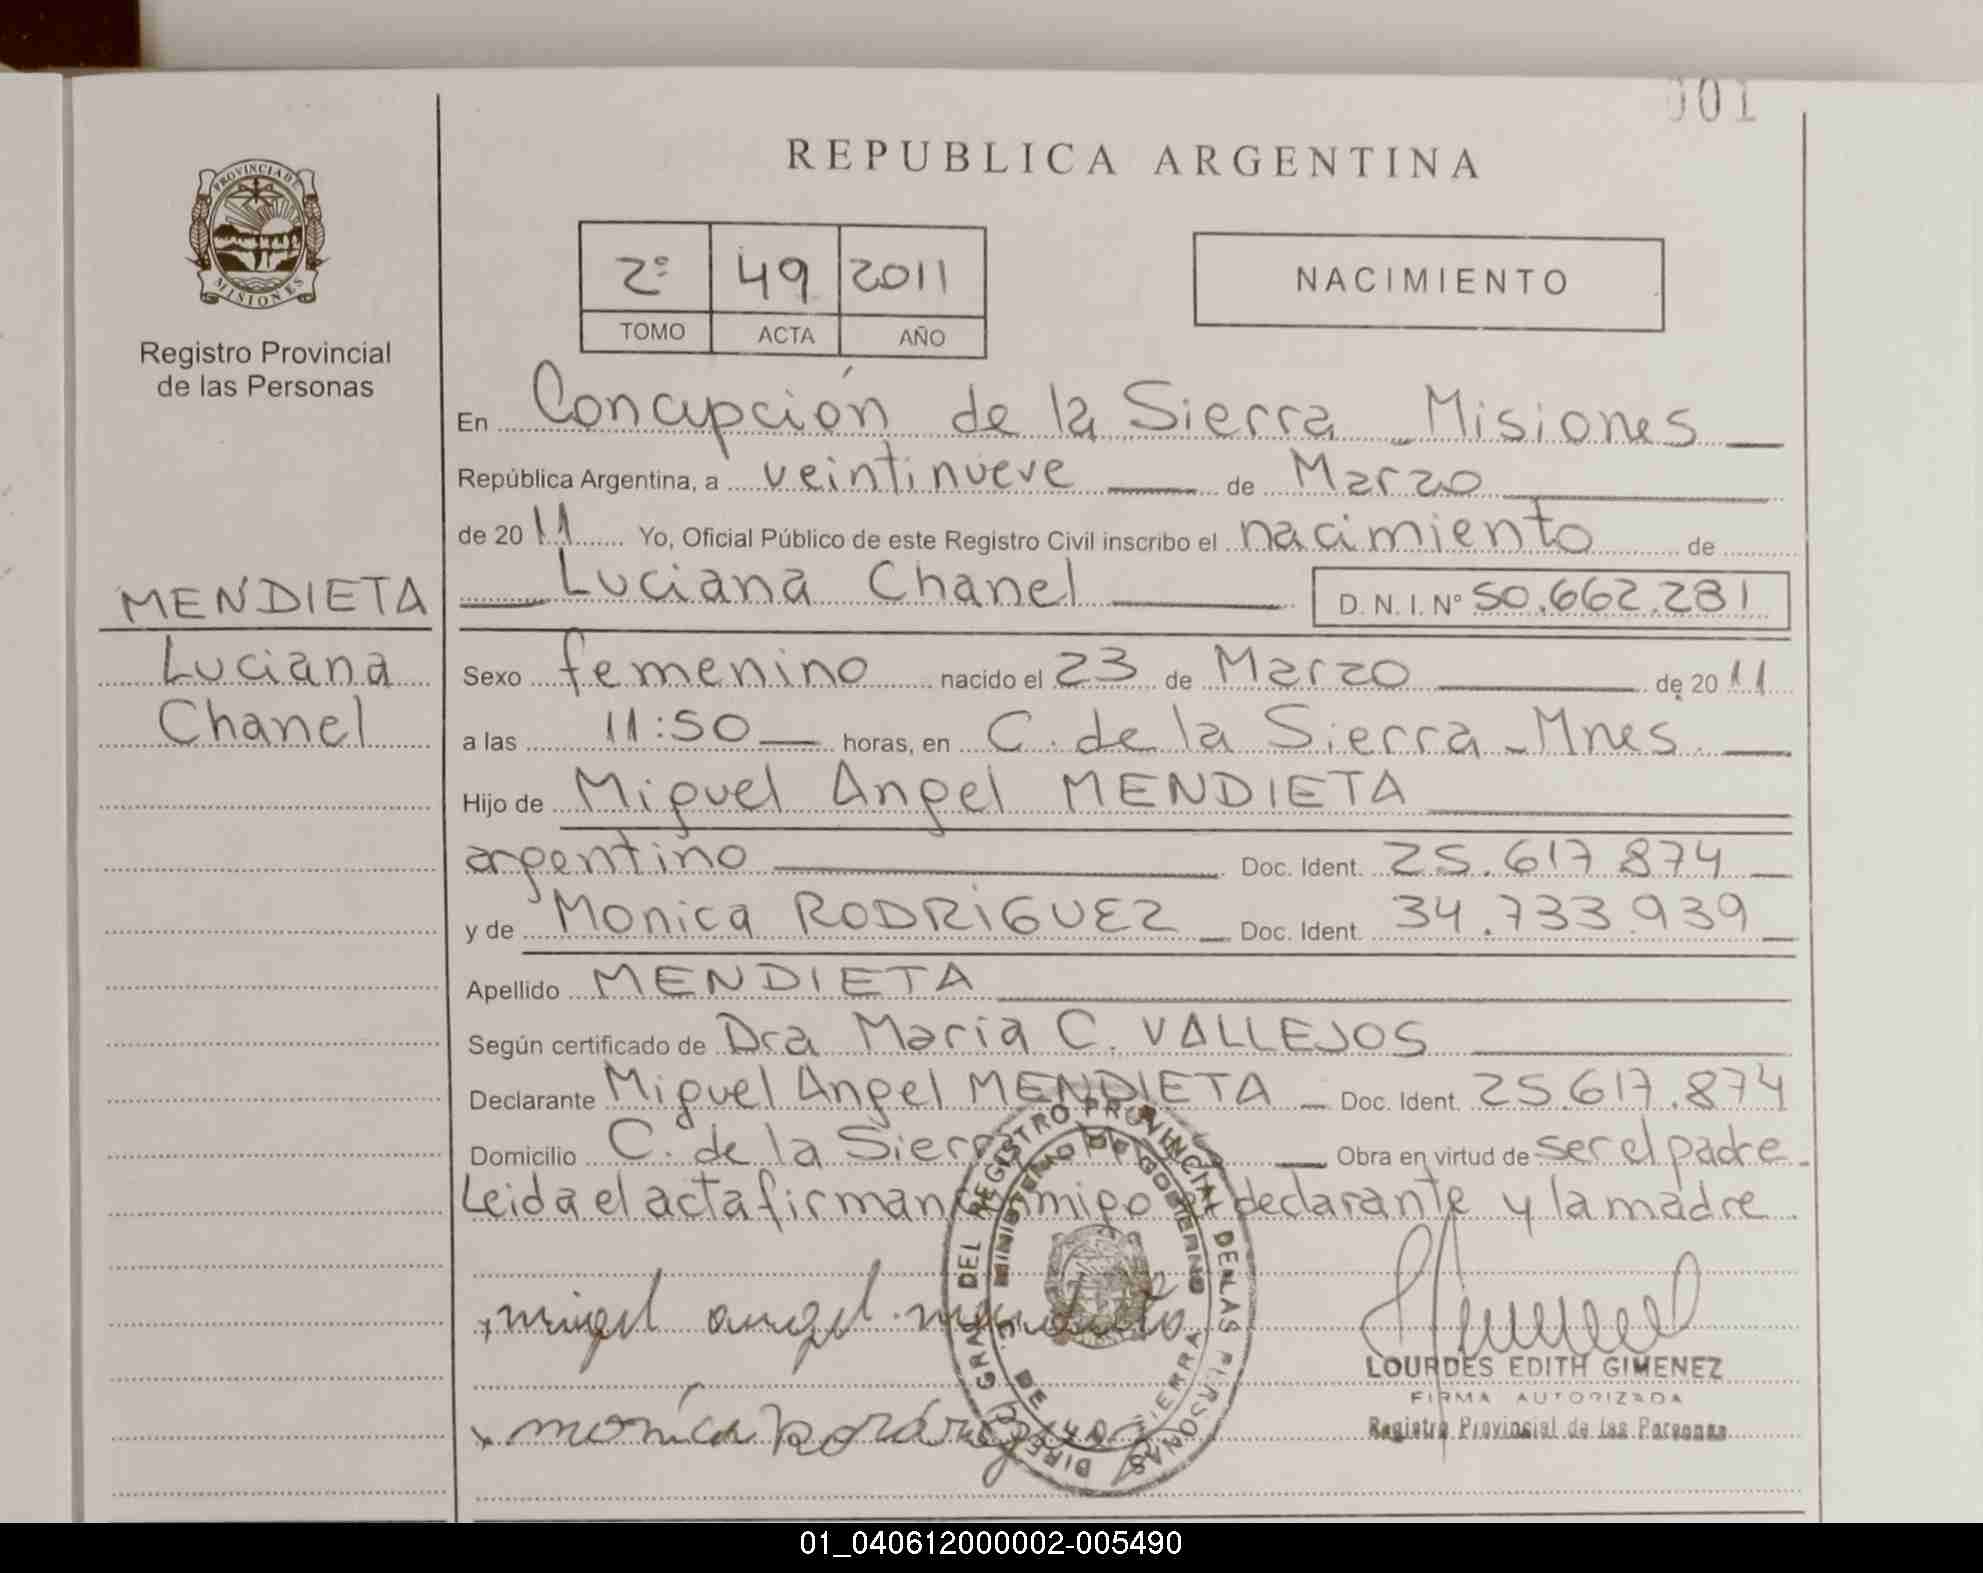 001
REPUBLICA ARGENTINA
PROVINCIA DE
MISIONES
Registro Provincial
de las Personas
2º 49 2011
TOMO ACTA AÑO
NACIMIENTO
En Concepción de la Sierra - Misiones
República Argentina, a veintinueve de Marzo
de 2011 Yo, Oficial Público de este Registro Civil inscribo el nacimiento de
Luciana Chanel D. N. I. Nº 50.662.281
MENDIETA
Luciana
Chanel
Sexo femenino nacido el 23 de Marzo de 2011
a las 11:50 horas, en C. de la Sierra - Mnes.
Hijo de Miguel Angel MENDIETA
argentino Doc. Ident. 25.617.874
y de Monica RODRIGUEZ Doc. Ident. 34.733.939
Apellido MENDIETA
Según certificado de Dra Maria C. VALLEJOS
Declarante Miguel Angel MENDIETA - Doc. Ident. 25.617.874
Domicilio C. de la Sierra Obra en virtud de ser el padre -
Leida el acta firman conmigo el declarante y la madre.
migel angel
monica
DIRECC. GRAL DEL REGISTRO PROVINCIAL DE LAS PERSONAS
MINISTERIO DE GOBIERNO
C. DE SIERRA
LOURDES EDITH GIMENEZ
FIRMA AUTORIZADA
Registro Provincial de las Personas
01_040612000002-005490